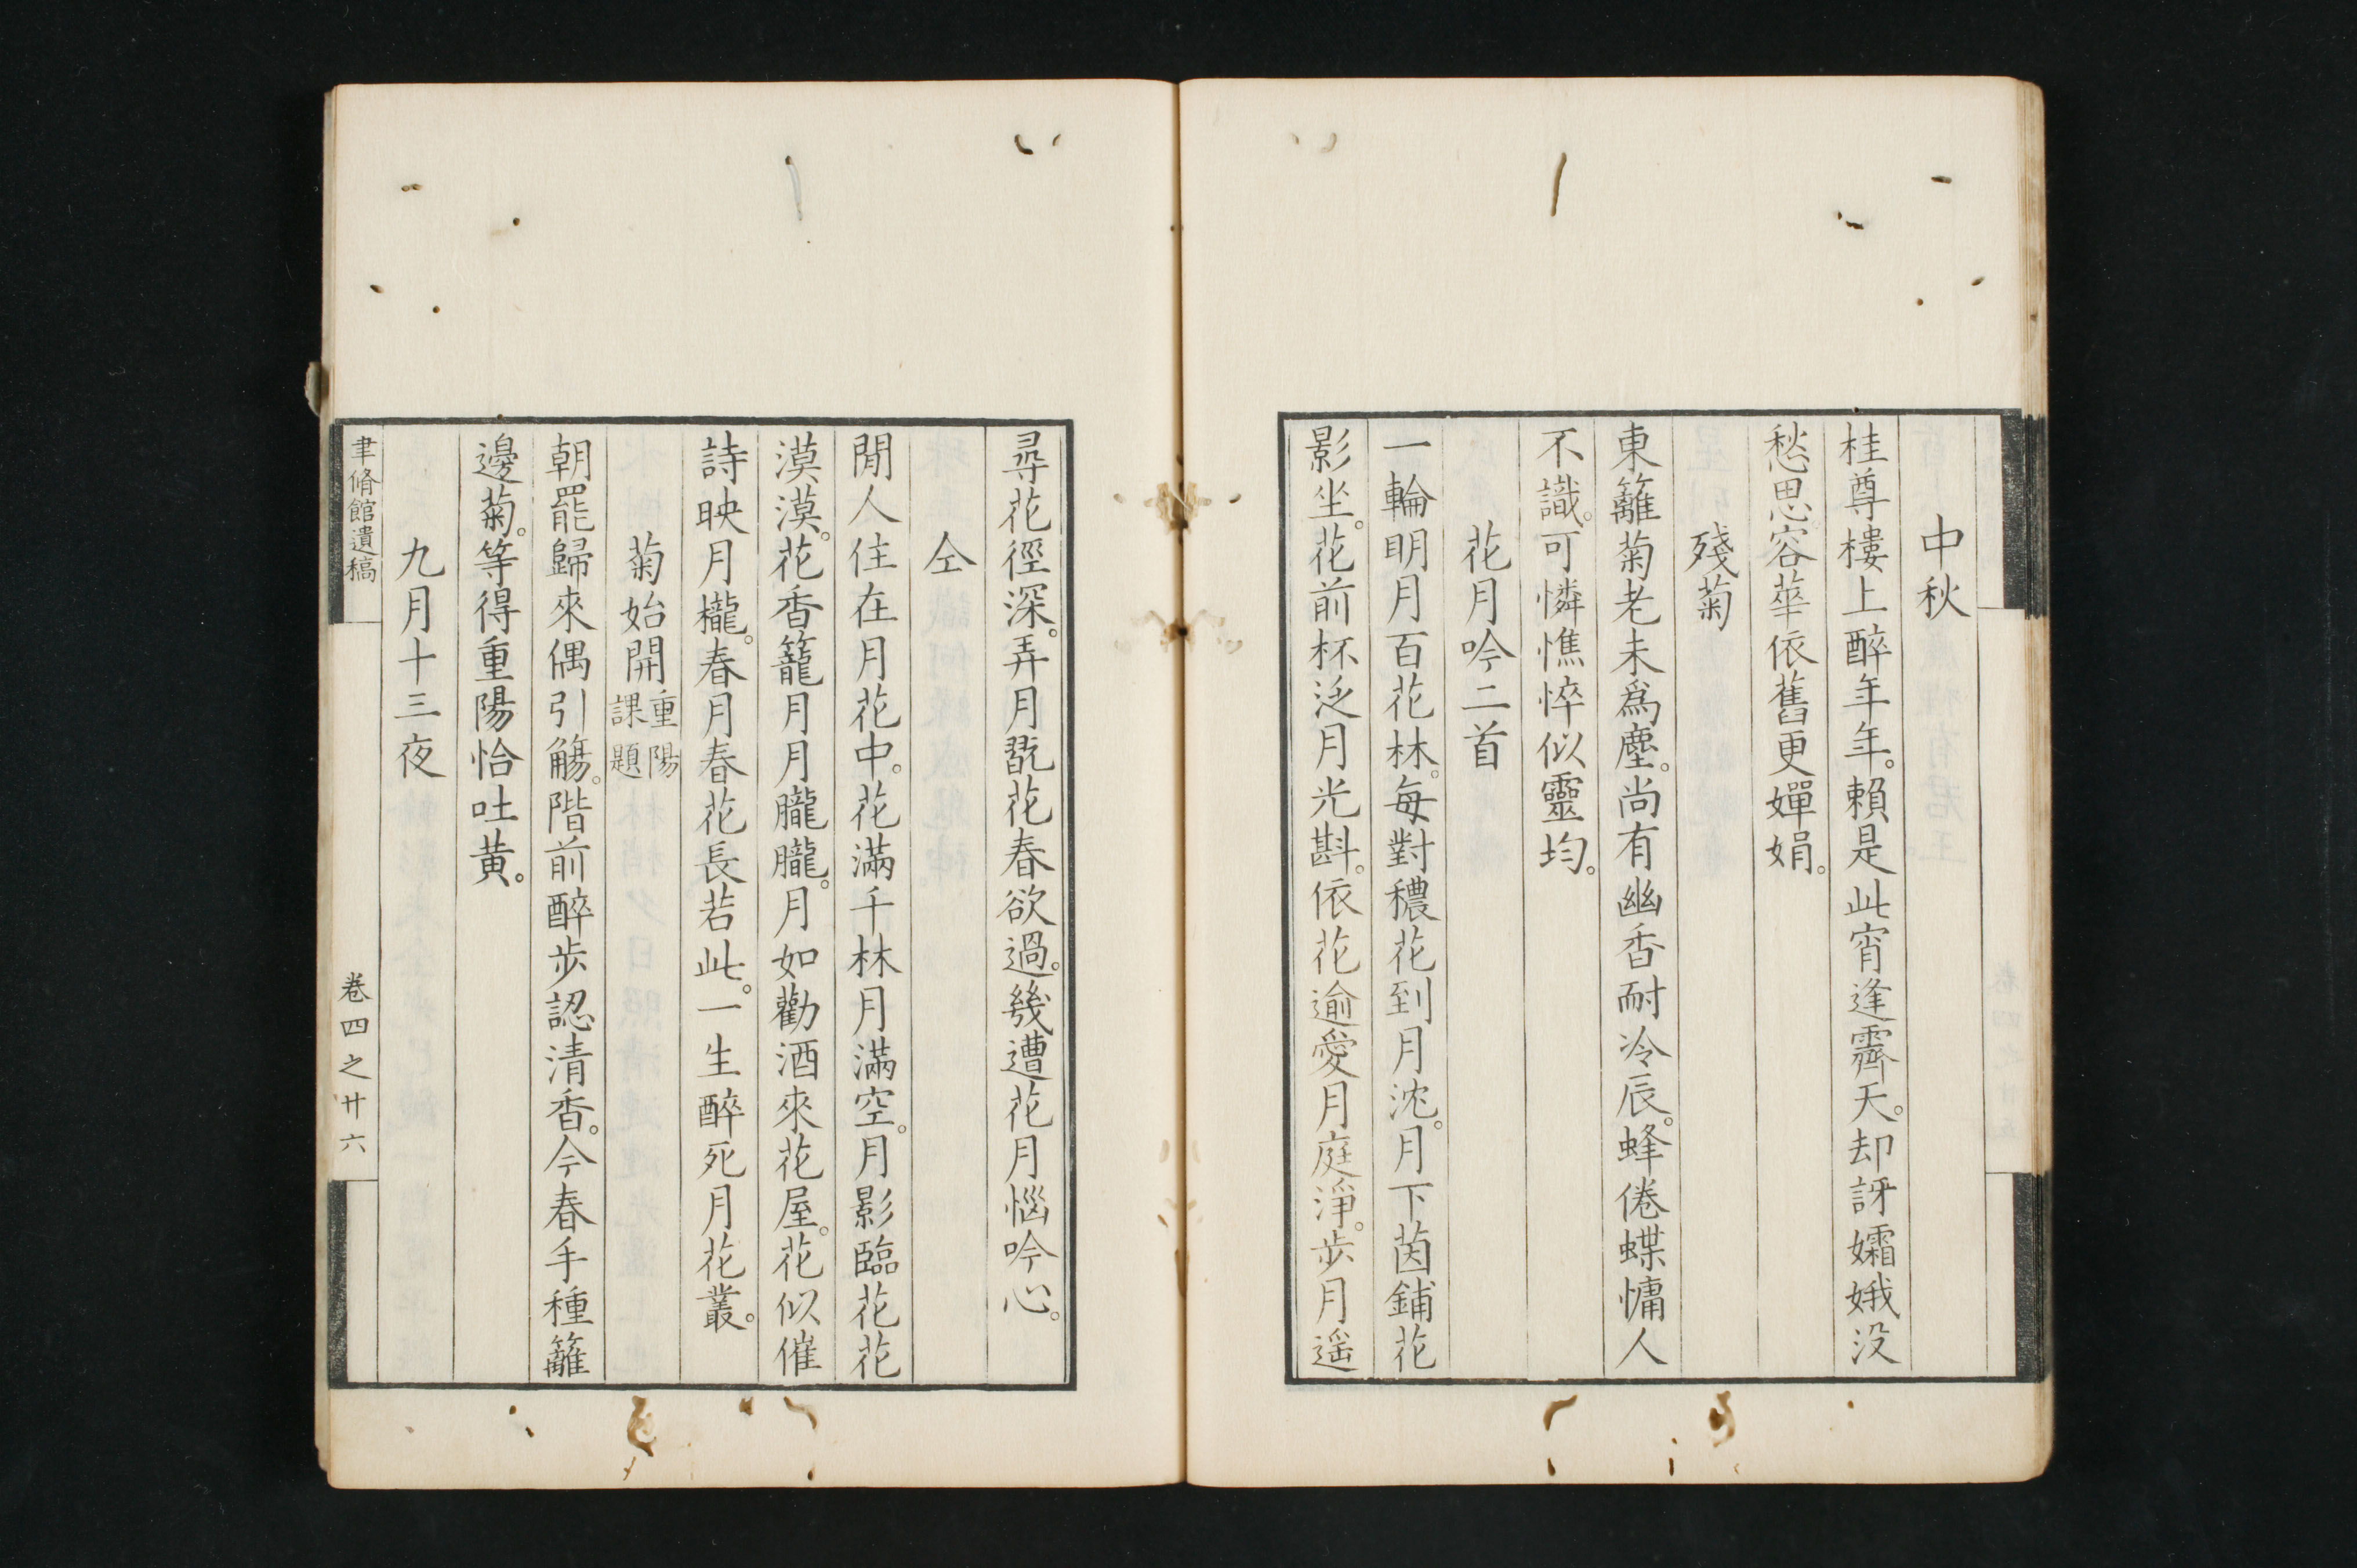 中秋
桂尊樓上醉年年。賴是此宵逢霽天。却訝孀娥没
愁思。容華依舊更嬋娟。
殘菊
東籬菊老未爲塵。尚有幽香耐冷辰。蜂倦蝶慵人
不識。可憐憔悴似靈均。
花月吟二首
一輪明月百花林。每對穠花到月沈。月下茵鋪花
影坐。花前杯泛月光斟。依花逾愛月庭淨。步月遥
尋花徑深。弄月翫花春欲過。幾遭花月惱吟心。
仝
閒人住在月花中。花滿千林月滿空。月影臨花花
漠漠。花香籠月月朧朧。月如勸酒來花屋。花似催
詩映月櫳。春月春花長若此。一生醉死月花叢。
菊始開 重陽課題
朝罷歸來偶引觴。階前醉步認清香。今春手種籬
邊菊。等得重陽恰吐黄。
九月十三夜
聿脩館遺稿
卷四之廿六